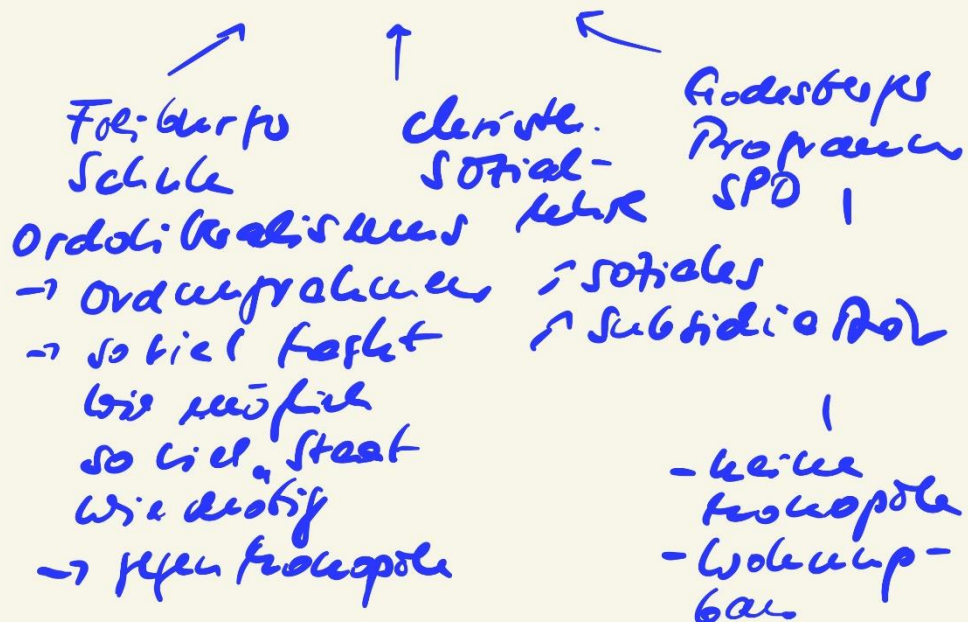 Freiburger
Schule
Ordoliberalismus
→ Ordnungsrahmen
→ so viel Markt
wie möglich
so viel Staat
wie nötig
→ gegen Monopole
christl.
Sozial-
lehre
↗ Soziales
↗ Subsidiarität
Godesberger
Programm
SPD
- keine
Monopole
- Wohnungs-
bau